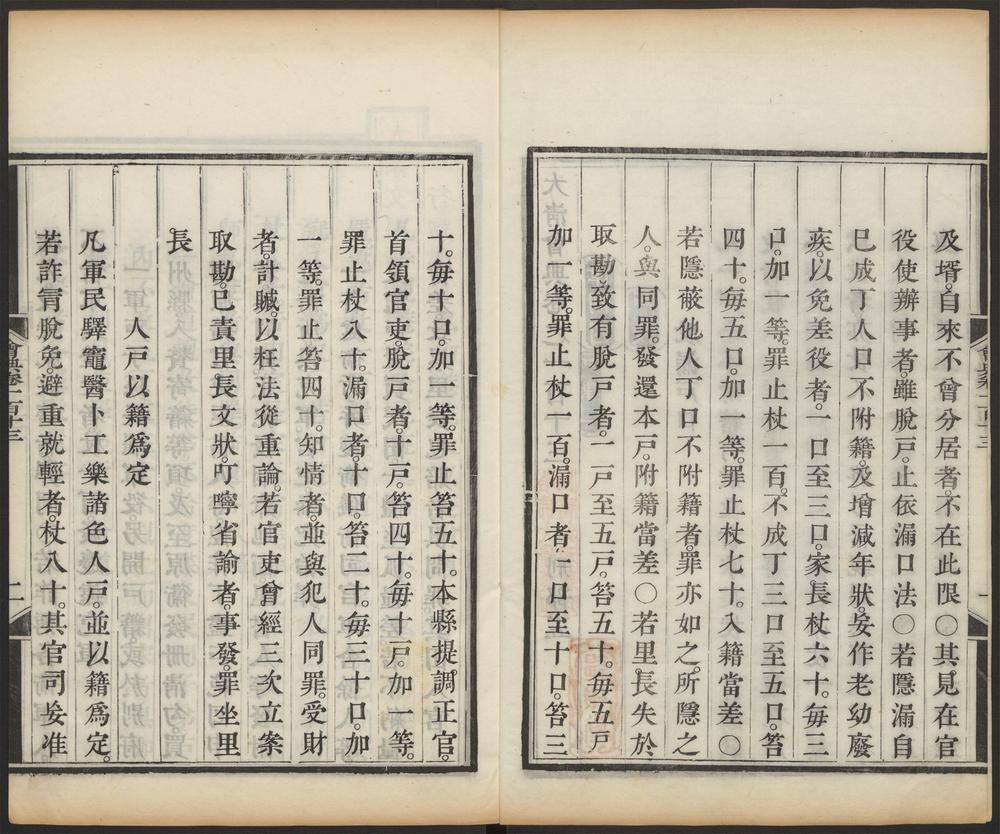 及壻自來不曾分居者不在此限〇其見在官
役使辦事者雖脫戶止依漏口法〇若隱漏自
已成丁人口不附籍及增減年狀妄作老幼廢
疾以免差役者一口至三口家長杖六十每三
口加一等罪止杖一百不成丁三口至五口笞
四十每五口加一等罪止杖七十入籍當差〇
若隱蔽他人丁口不附籍者罪亦如之所隱之
人與同罪發還本戶附籍當差〇若里長失於
取勘致有脫戶者一戶至五戶笞五十每五戶
加一等罪止杖一百漏口者一口至十口笞三
十每十口加一等罪止笞五十本縣提調正官
首領官吏脫戶者十戶笞四十每十戶加一等
罪止杖八十漏口者十口笞二十每三十口加
一等罪止笞四十知情者並與犯人同罪受財
者計贓以枉法從重論若官吏曾經三次立案
取勘已責里長文狀叮嚀省諭者事發罪坐里
長
人戶以籍爲定
凡軍民驛竈醫卜工樂諸色人戶並以籍爲定
若詐冐脫免避重就輕者杖八十其官司妄准
二